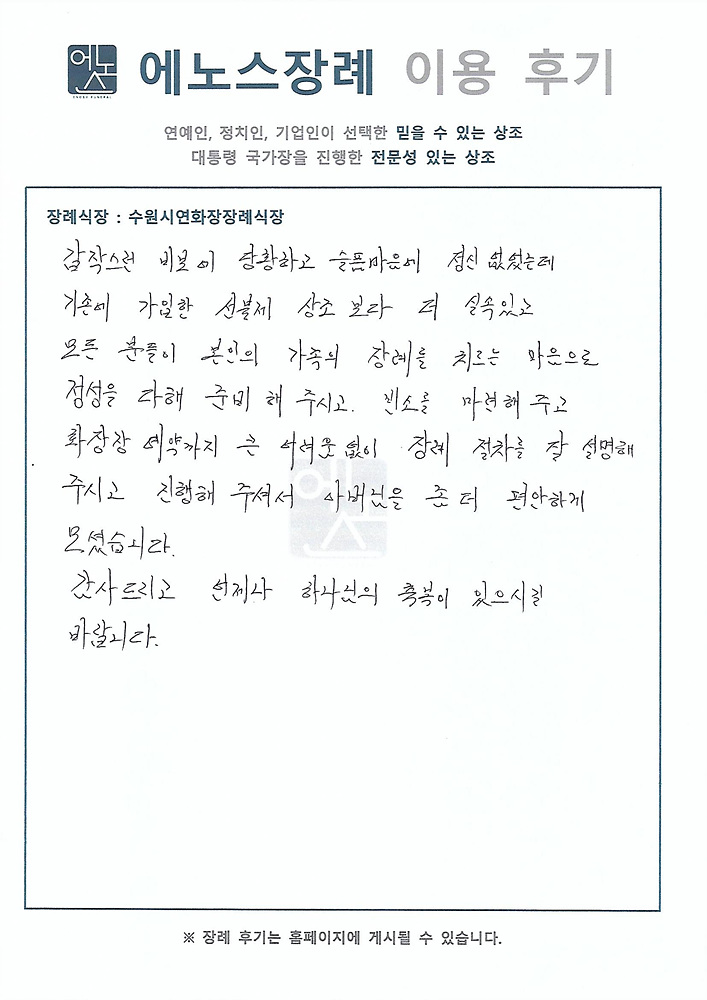 에노스
ENOSH FUNERAL
에노스장례 이용 후기
연예인, 정치인, 기업인이 선택한 믿을 수 있는 상조
대통령 국가장을 진행한 전문성 있는 상조
장례식장 : 수원시연화장장례식장
갑작스런 비보에 당황하고 슬픔마음에 정신 없었는데
기존에 가입한 선불제 상조 보다 더 실속있고
모든 분들이 본인의 가족의 장례를 치르는 마음으로
정성을 다해 준비 해 주시고. 빈소를 마련해 주고
화장장 예약까지 큰 어려운 없이 장례 절차를 잘 설명해
주시고 진행해 주셔서 아버님을 좀 더 편안하게
모셨습니다.
감사드리고 언제나 하나님의 축복이 있으시길
바랍니다.
※ 장례 후기는 홈페이지에 게시될 수 있습니다.